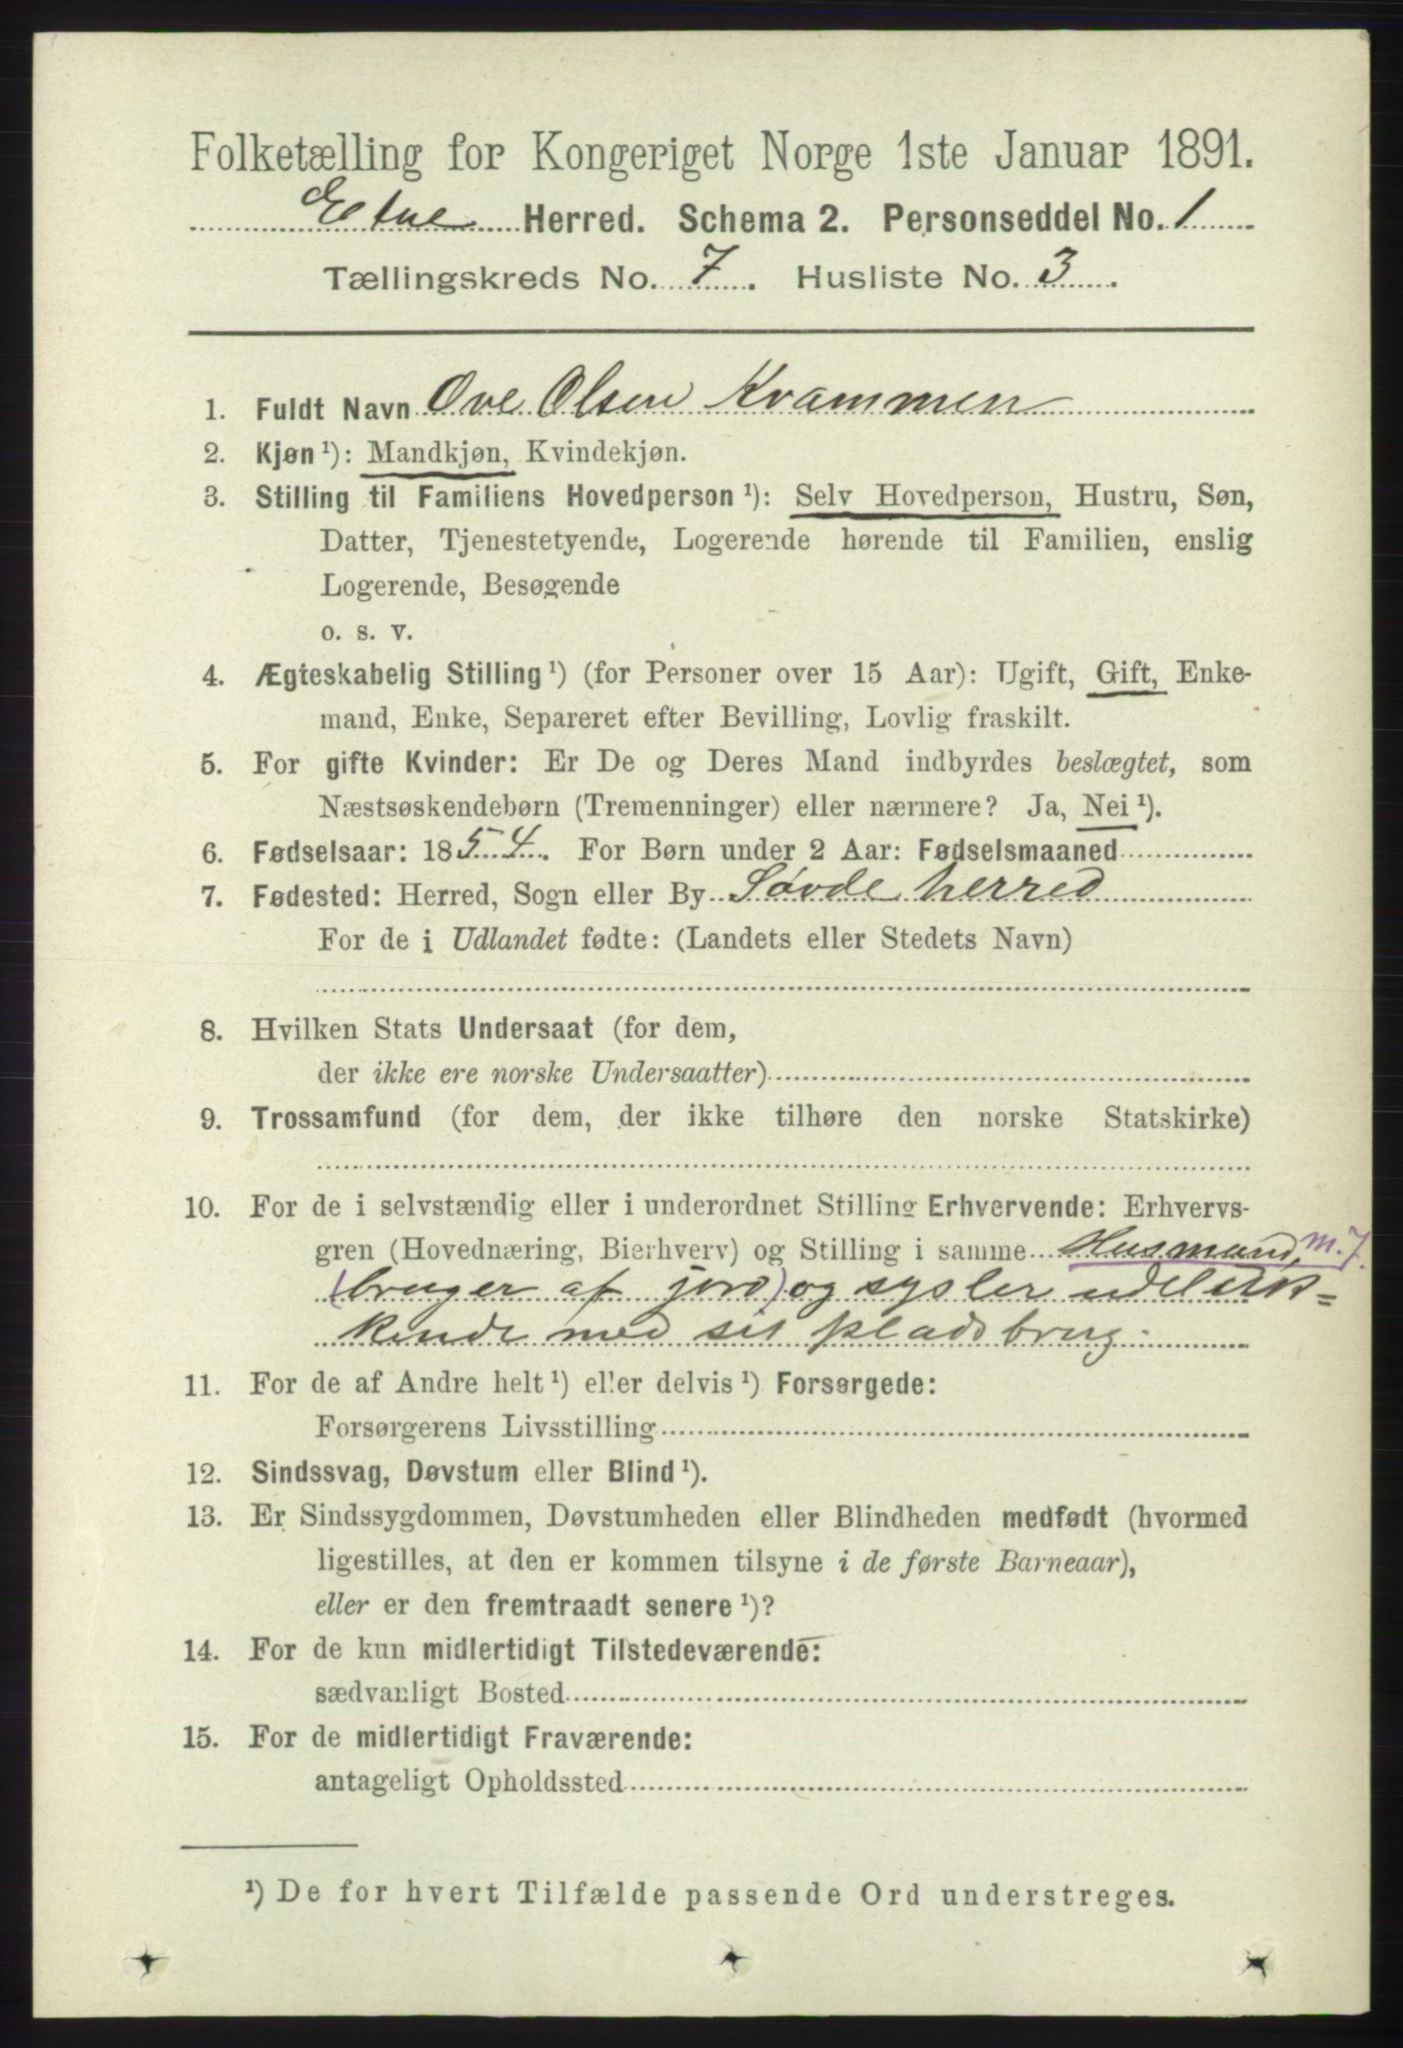 Folketælling for Kongeriget Norge 1ste Januar 1891.
Etne Herred. Schema 2. Personseddel No. 1
Tællingskreds No. 7. Husliste No. 3.
1. Fuldt Navn Ove Olsen Kvammen
2. Kjøn ¹): Mandkjøn, Kvindekjøn.
3. Stilling til Familiens Hovedperson ¹): Selv Hovedperson, Hustru, Søn,
Datter, Tjenestetyende, Logerende hørende til Familien, enslig
Logerende, Besøgende
o. s. v.
4. Ægteskabelig Stilling ¹) (for Personer over 15 Aar): Ugift, Gift, Enke-
mand, Enke, Separeret efter Bevilling, Lovlig fraskilt.
5. For gifte Kvinder: Er De og Deres Mand indbyrdes beslægtet, som
Næstsøskendebørn (Tremenninger) eller nærmere? Ja, Nei ¹).
6. Fødselsaar: 1854. For Børn under 2 Aar: Fødselsmaaned
7. Fødested: Herred, Sogn eller By Søvde herred
For de i Udlandet fødte: (Landets eller Stedets Navn)
8. Hvilken Stats Undersaat (for dem,
der ikke ere norske Undersaatter)
9. Trossamfund (for dem, der ikke tilhøre den norske Statskirke)
10. For de i selvstændig eller i underordnet Stilling Erhvervende: Erhvervs-
gren (Hovednæring, Bierhverv) og Stilling i samme Husmand, m. J.
(bruger af jord) og sysler udeluk=
kende med sit pladsbrug.
11. For de af Andre helt ¹) eller delvis ¹) Forsørgede:
Forsørgerens Livsstilling
12. Sindssvag, Døvstum eller Blind ¹).
13. Er Sindssygdommen, Døvstumheden eller Blindheden medfødt (hvormed
ligestilles, at den er kommen tilsyne i de første Barneaar),
eller er den fremtraadt senere ¹)?
14. For de kun midlertidigt Tilstedeværende:
sædvanligt Bosted
15. For de midlertidigt Fraværende:
antageligt Opholdssted
¹) De for hvert Tilfælde passende Ord understreges.